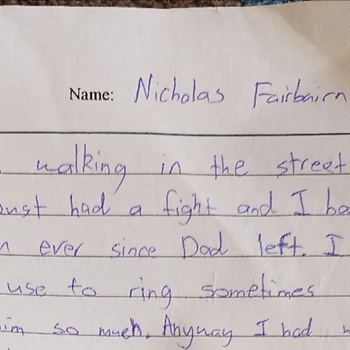 Name: Nicholas Fairbairn
walking in the street
had a fight and I
ever since Dad left. I
use to ring sometimes
so much. Anyway I had